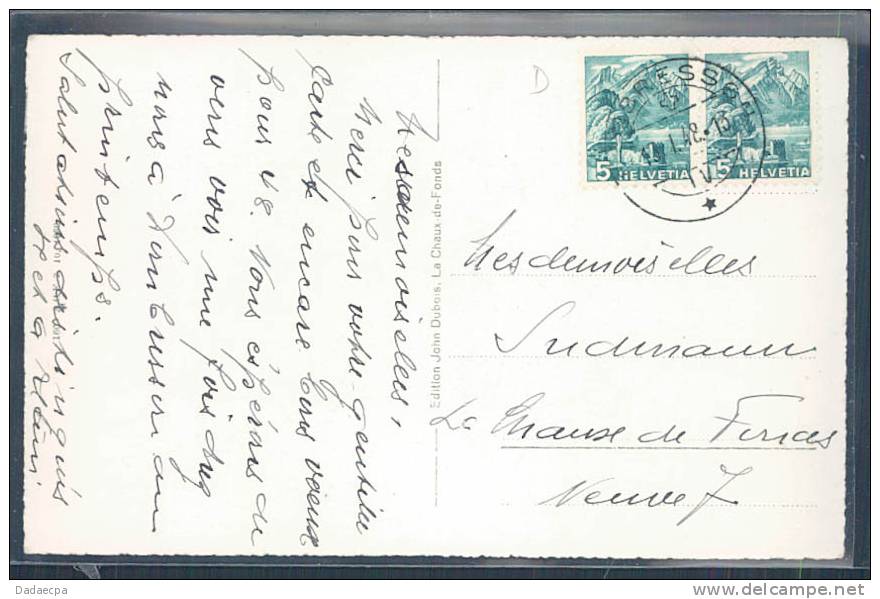 Mesdemoiselles,
Merci pour votre gentille
carte et encore bons voeux
pour 48. Nous espérons de
vous voir une fois chez
nous à Montbresson au
printemps.
Salutations distinguées
BRESSON
I.48-13
5 HELVETIA
5 HELVETIA
Mesdemoiselles
Sudmann
La Chaux de Fonds
Neuve 7
Edition John Dubois, La Chaux-de-Fonds
D
Dadaecpa
www.delcampe.net